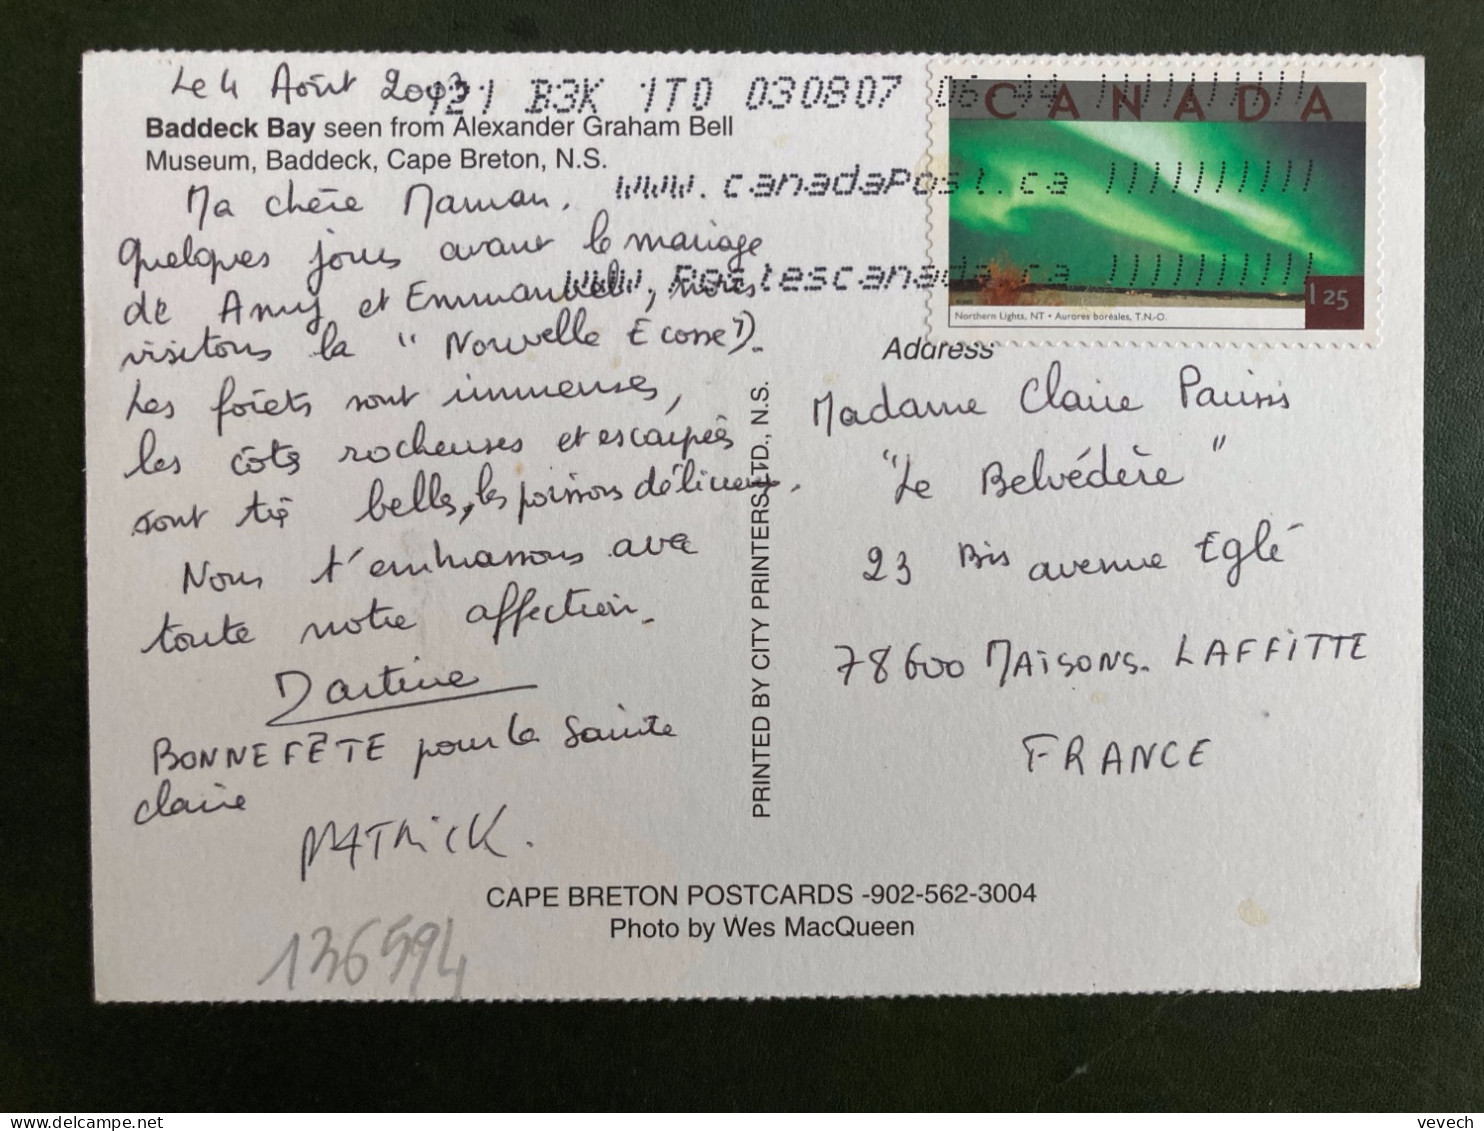 Le 4 Août 2003
B3K 1T0 030807 06:44
CANADA
Baddeck Bay seen from Alexander Graham Bell
Museum, Baddeck, Cape Breton, N.S.
www.canadaPost.ca
www.Postescanada.ca
1 25
Northern Lights, NT • Aurores boréales, T.N.-O.
Ma chère Maman,
Quelques jours avant le mariage
de Amy et Emmanuel, nous
visitons la "Nouvelle Ecosse").
Les forêts sont immenses,
les côts rocheuses et escarpées
sont très belles, les poissons délicieux.
Nous t'embrassons avec
toute notre affection.
Martine
BONNE FÊTE pour la Sainte
Claire
PATRICK.
136594
Address
Madame Claire
"Le Belvédère"
23 Bis avenue Eglé
78600 MAISONS-LAFFITTE
FRANCE
PRINTED BY CITY PRINTERS LTD., N.S.
CAPE BRETON POSTCARDS -902-562-3004
Photo by Wes MacQueen
vevech